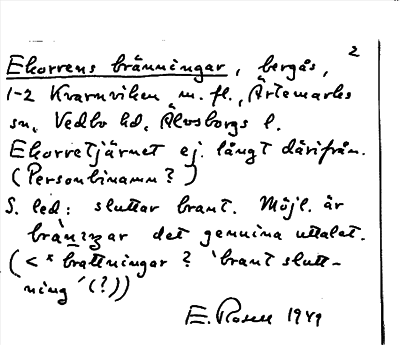 2
Ekorrens bränningar, bergås,
1-2 Kvarnviken m. fl., Ärtemarks
sn, Vedbo hd, Älvsborgs l.
Ekorretjärnet ej långt därifrån.
(Personbinamn?)
S. led: sluttar brant. Möjl. är
brän̄iŋar det genuina uttalet.
(< *brattningar? 'brant slutt-
ning' (?))
E. Rosell 1949